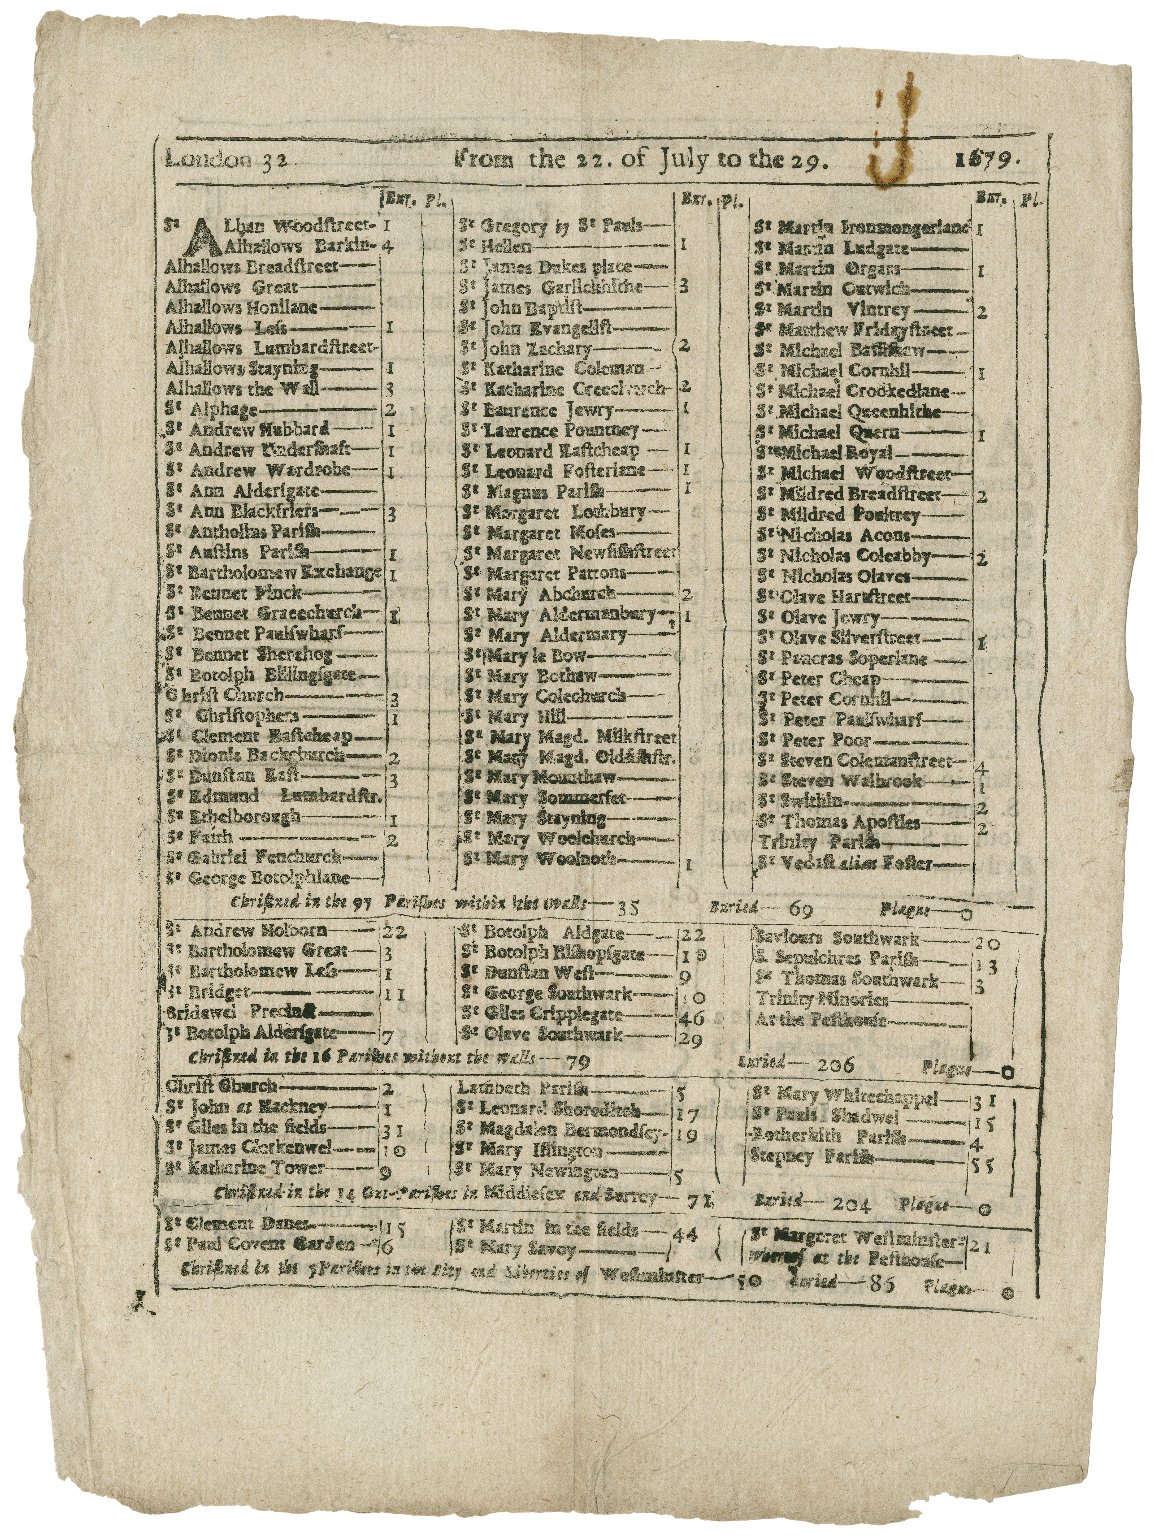 London 32. From the 22. of July to the 29. 1679.
Bur. Pl. Bur. Pl. Bur. Pl.
St ALban Woodſtreet- 1
Alhallows Barkin- 4
Alhallows Breadſtreet
Alhallows Great
Alhallows Honilane
Alhallows Leſs 1
Alhallows Lumbardſtreet-
Alhallows Stayning 1
Alhallows the Wall 3
St Alphage 2
St Andrew Hubbard 1
St Andrew Underſhaft 1
St Andrew Wardrobe 1
St Ann Alderſgate
St Ann Blackfriers 3
St Antholins Pariſh
St Auſtins Pariſh 1
St Bartholomew Exchange 1
St Bennet Finck
St Bennet Gracechurch 1
St Bennet Paulſwharf
St Bennet Sherehog
St Botolph Billingſgate
Chriſt Church 3
St Chriſtophers 1
St Clement Eaſtcheap
St Dionis Backchurch 2
St Dunſtan Eaſt 3
St Edmund Lumbardſtr.
St Ethelborough 1
St Faith 2
St Gabriel Fenchurch
St George Botolphlane
St Gregory by St Pauls
St Hellen 1
St James Dukes place
St James Garlickhithe 3
St John Baptiſt
St John Evangeliſt
St John Zachary 2
St Katharine Coleman
St Katharine Creechurch 2
St Laurence Jewry 1
St Laurence Pountney
St Leonard Eaſtcheap 1
St Leonard Foſterlane 1
St Magnus Pariſh 1
St Margaret Lothbury
St Margaret Moſes
St Margaret Newfiſhſtreet
St Margaret Pattons
St Mary Abchurch 2
St Mary Aldermanbury 1
St Mary Aldermary
St Mary le Bow
St Mary Bothaw
St Mary Colechurch
St Mary Hill
St Mary Magd. Milkſtreet
St Mary Magd. Oldfiſhſtr.
St Mary Mounthaw
St Mary Sommerſet
St Mary Stayning
St Mary Woolchurch
St Mary Woolnoth 1
St Martin Ironmongerlane 1
St Martin Ludgate
St Martin Organs 1
St Martin Outwich
St Martin Vintrey 2
St Matthew Fridayſtreet
St Michael Baſſiſhaw
St Michael Cornhil 1
St Michael Crookedlane
St Michael Queenhithe
St Michael Quern 1
St Michael Royal
St Michael Woodſtreet
St Mildred Breadſtreet 2
St Mildred Poultrey
St Nicholas Acons
St Nicholas Coleabby 2
St Nicholas Olaves
St Olave Hartſtreet
St Olave Jewry
St Olave Silverſtreet 1
St Pancras Soperlane
St Peter Cheap
St Peter Cornhil
St Peter Paulſwharf
St Peter Poor
St Steven Colemanſtreet 4
St Steven Walbrook 1
St Swithin 2
St Thomas Apoſtles 2
Trinity Pariſh
St Vedaſt alias Foſter
Chriſtned in the 97 Pariſhes within the walls 35 Buried 69 Plague 0
St Andrew Holborn 22
St Bartholomew Great 3
St Bartholomew Leſs 1
St Bridget 11
Bridewel Precinct
St Botolph Alderſgate 7
St Botolph Aldgate 22
St Botolph Biſhopſgate 10
St Dunſtan Weſt 9
St George Southwark 10
St Giles Cripplegate 46
St Olave Southwark 29
Saviours Southwark 20
S. Sepulchres Pariſh 13
St Thomas Southwark 3
Trinity Minories
At the Peſthouſe
Chriſtned in the 16 Pariſhes without the walls 79 Buried 206 Plague 0
Chriſt Church 2
St John at Hackney 1
St Giles in the fields 31
St James Clerkenwel 10
St Katharine Tower 9
Lambeth Pariſh 5
St Leonard Shoreditch 17
St Magdalen Bermondſey 19
St Mary Iſlington
St Mary Newington 5
St Mary Whitechappel 31
St Pauls Shadwel 15
Rotherhith Pariſh 4
Stepney Pariſh 55
Chriſtned in the 14 Out-Pariſhes in Middleſex and Surrey 71 Buried 204 Plague 0
St Clement Danes 15
St Paul Covent Garden 6
St Martin in the fields 44
St Mary Savoy
St Margaret Weſtminſter 21
Whereof at the Peſthouſe
Chriſtned in the 5 Pariſhes in the City and Liberties of Weſtminſter 50 Buried 86 Plague 0